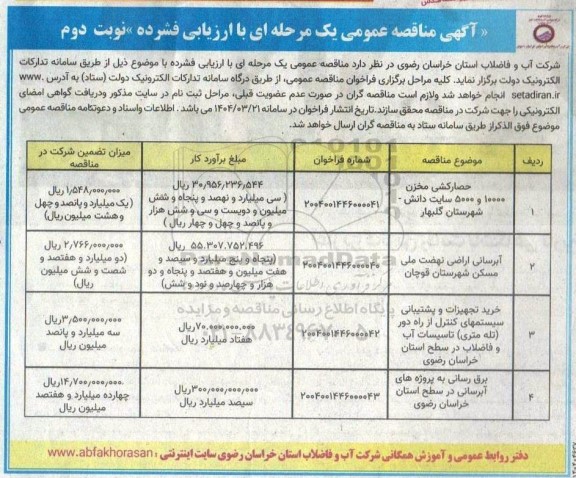 « آگهی مناقصه عمومی یک مرحله ای با ارزیابی فشرده »نوبت دوم
شرکت آب و فاضلاب استان خراسان رضوی در نظر دارد مناقصه عمومی یک مرحله ای با ارزیابی فشرده با موضوع ذیل از طریق سامانه تدارکات
الکترونیک دولت برگزار نماید. کلیه مراحل برگزاری فراخوان مناقصه عمومی، از طریق درگاه سامانه تدارکات الکترونیک دولت (ستاد) به آدرس www.
setadiran.ir انجام خواهد شد ولازم است مناقصه گران در صورت عدم عضویت قبلی، مراحل ثبت نام در سایت مذکور ودریافت گواهی امضای
الکترونیکی را جهت شرکت در مناقصه محقق سازند.تاریخ انتشار فراخوان در سامانه ۱۴۰۴/۰۳/۲۱ می باشد . اطلاعات واسناد و دعوتنامه مناقصه عمومی
موضوع فوق الذکراز طریق سامانه ستاد به مناقصه گران ارسال خواهد شد.
ردیف موضوع مناقصه شماره فراخوان مبلغ برآورد کار میزان تضمین شرکت در مناقصه
۱ حصارکشی مخزن ۱۰۰۰۰ و ۵۰۰۰ سایت دانش - شهرستان گلبهار ۲۰۰۴۰۰۱۴۴۶۰۰۰۰۴۱ ۳۰,۹۵۶,۲۳۶,۵۴۴ ریال ( سی میلیارد و نهصد و پنجاه و شش میلیون و دویست و سی و شش هزار و پانصد و چهل و چهار ریال ) ۱,۵۴۸,۰۰۰,۰۰۰ ریال (یک میلیارد و پانصد و چهل و هشت میلیون ریال)
۲ آبرسانی اراضی نهضت ملی مسکن شهرستان قوچان ۲۰۰۴۰۰۱۴۴۶۰۰۰۰۴۰ ۵۵.۳۰۷.۷۵۲.۴۹۶ ریال (پنجاه و پنج میلیارد و سیصد و هفت میلیون و هفتصد و پنجاه و دو هزار و چهارصد و نود و شش) ۲,۷۶۶,۰۰۰,۰۰۰ ریال (دو میلیارد و هفتصد و شصت و شش میلیون ریال)
۳ خرید تجهیزات و پشتیبانی سیستمهای کنترل از راه دور (تله متری) تاسیسات آب و فاضلاب در سطح استان خراسان رضوی ۲۰۰۴۰۰۱۴۴۶۰۰۰۰۴۲ ۷۰.۰۰۰.۰۰۰.۰۰۰ریال هفتاد میلیارد ریال ۳,۵۰۰,۰۰۰,۰۰۰ریال سه میلیارد و پانصد میلیون ریال
۴ برق رسانی به پروژه های آبرسانی در سطح استان خراسان رضوی ۲۰۰۴۰۰۱۴۴۶۰۰۰۰۴۳ ۳۰۰,۰۰۰,۰۰۰,۰۰۰ریال سیصد میلیارد ریال ۱۴,۷۰۰,۰۰۰,۰۰۰ریال چهارده میلیارد و هفتصد میلیون ریال
دفتر روابط عمومی و آموزش همگانی شرکت آب و فاضلاب استان خراسان رضوی سایت اینترنتی : www.abfakhorasan.ir